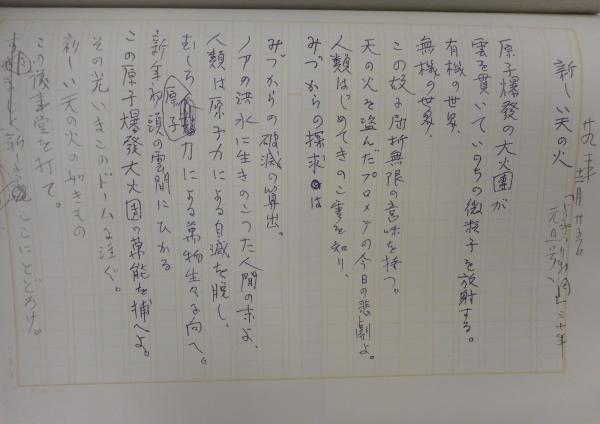 新しい天の火
原子爆發の大火團が
雲を貫いていのちの微粒子を放射する。
有機の世界、
無機の世界、
この故に屈折無限の意味を持つ。
天の火を盗んだプロメテの今日の悲劇よ。
人類はじめてきのこ雲を知り、
みづからの探求は
みづからの破滅の算出。
ノアの洪水に生きのこつた人間の末よ、
人類は原子力による自滅を脱し、
むしろ原子力による萬物生々に向へ。
新年初頭の雲間にひかる
この原子爆發大火團の萬能を捕へよ。
その光いまこのドームに注ぐ。
新しい天の火の如きもの
この議事堂を打て。
ここにとどろけ。